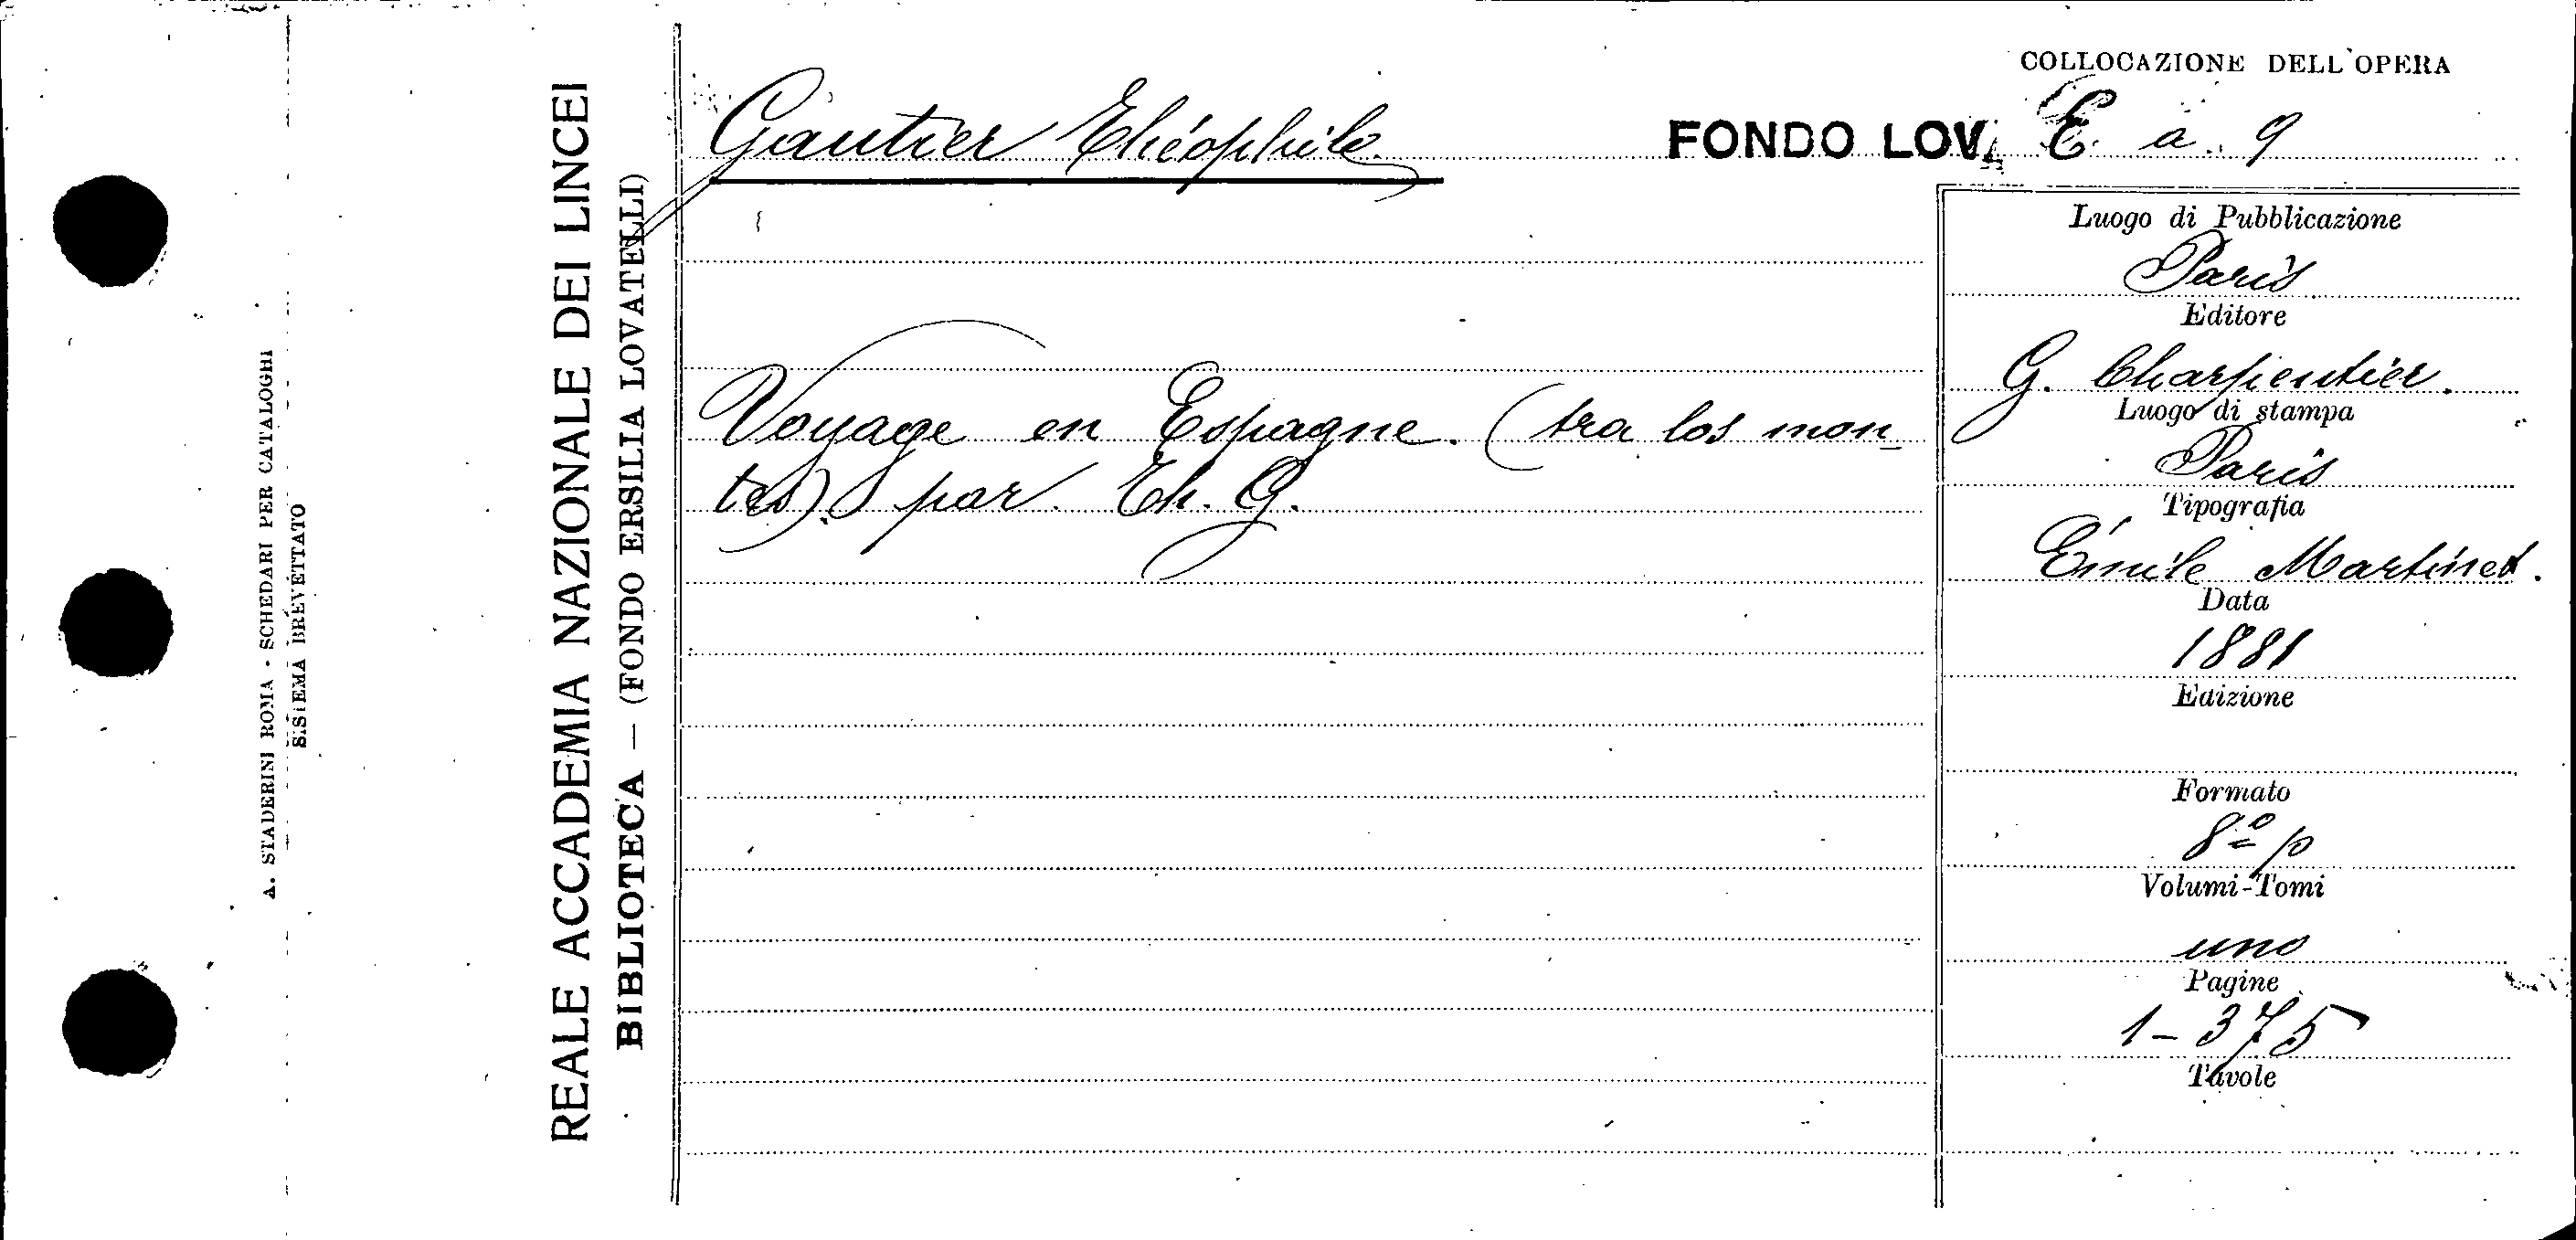 A. STADERINI ROMA - SCHEDARI PER CATALOGHI
SISTEMA BREVETTATO
REALE ACCADEMIA NAZIONALE DEI LINCEI
BIBLIOTECA — (FONDO ERSILIA LOVATELLI)
COLLOCAZIONE DELL'OPERA
Gautier Théophile
FONDO LOV. E. a. 9
Voyage en Espagne. (tra los mon-
tes). par. Th. G.
Luogo di Pubblicazione
Paris
Editore
G. Charpentier.
Luogo di stampa
Paris
Tipografia
Émile Martinet.
Data
1881
Edizione
Formato
8º p
Volumi-Tomi
uno
Pagine
1-375
Tavole